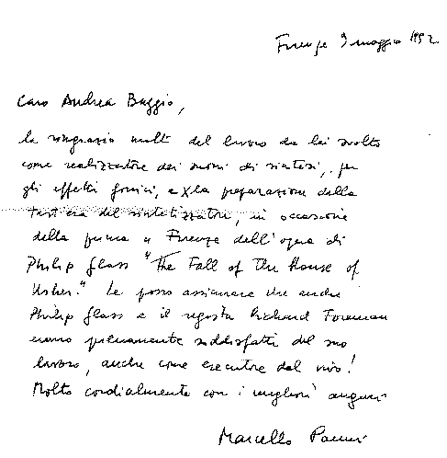 Firenze 9 maggio 1992
Caro Andrea Baggio,
la ringrazio molto del lavoro da lei svolto
come realizzatore dei suoni di sintesi, per
gli effetti fonici, e x la preparazione della
tastiera del sintetizzatore, in occasione
della prima a Firenze dell'opera di
Philip Glass "The Fall of The House of
Usher." Le posso assicurare che anche
Philip Glass e il regista Richard Foreman
erano pienamente soddisfatti del suo
lavoro, anche come esecutore dal vivo!
Molto cordialmente con i migliori auguri
Marcello Panni